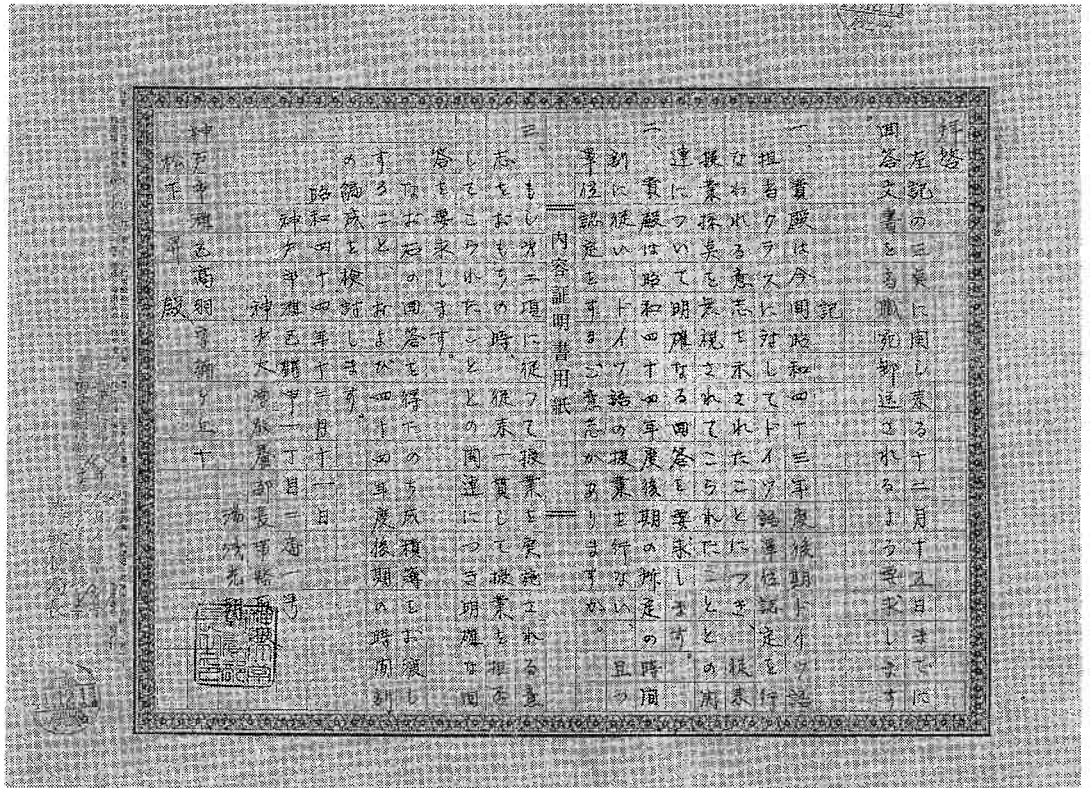 拝啓
左記の三点に関し来る十二月十五日までに
回答文書を当職宛郵送されるよう要求します
記
一、貴殿は今回昭和四十三年度後期ドイツ語
担当クラスに対してドイツ語単位認定を行
なわれる意志を示されたことにつき、従来
授業採点を無視されてこられたこととの関
連について明確なる回答を要求します。
二、貴殿は昭和四十四年度後期の所定の時間
割に従い、ドイツ語の授業を行ない、且つ
単位認定をするご意志がありますか。
内容証明書用紙
三、もし第二項に従って授業を実施される意
志をおもちの時、従来一貫して授業を拒否
してこられたこととの関連につき明確な回
答を要求します。
なお右の回答を得たのち成績簿をお渡し
すること、および四十四年度後期の時間割
の編成を検討します。
昭和四十四年十二月十一日
神戸市灘区鶴甲一丁目二番一号
神戸大学教養部長事務取
湯浅光朝
神戸市灘区高羽字
松下昇 殿